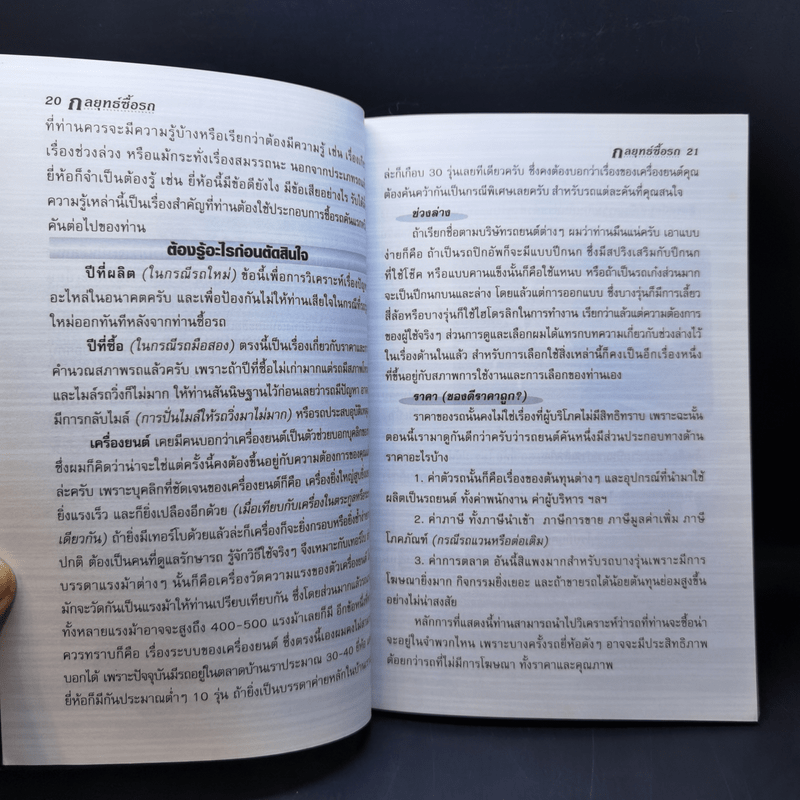 20 กลยุทธ์ซื้อรถ
ที่ท่านควรจะมีความรู้บ้างหรือเรียกว่าต้องมีความรู้ เช่น เรื่อง
เรื่องช่วงล่วง หรือแม้กระทั่งเรื่องสมรรถนะ นอกจากประเภทรถ
ยี่ห้อก็จำเป็นต้องรู้ เช่น ยี่ห้อนี้มีข้อดียังไง มีข้อเสียอย่างไร
ความรู้เหล่านี้เป็นเรื่องสำคัญที่ท่านต้องใช้ประกอบการซื้อรถคัน
คันต่อไปของท่าน
ต้องรู้อะไรก่อนตัดสินใจ
ปีที่ผลิต (ในกรณีรถใหม่) ข้อนี้เพื่อการวิเคราะห์เรื่อง
อะไหล่ในอนาคตครับ และเพื่อป้องกันไม่ให้ท่านเสียใจในกรณีที่
ใหม่ออกทันทีหลังจากท่านซื้อรถ
ปีที่ซื้อ (ในกรณีรถมือสอง) ตรงนี้เป็นเรื่องเกี่ยวกับราคาและ
คำนวณสภาพรถแล้วครับ เพราะถ้าปีที่ซื้อไม่เก่ามากแต่รถมีสภาพ
และไมล์รถวิ่งก็ไม่มาก ให้ท่านสันนิษฐานไว้ก่อนเลยว่ารถมีปัญหา
มีการกลับไมล์ (การปั่นไมล์ให้รถวิ่งมาไม่มาก) หรือรถประสบอุบัติเหตุ
เครื่องยนต์ เคยมีคนบอกว่าเครื่องยนต์เป็นตัวช่วยบอกบุคลิก
ซึ่งผมก็คิดว่าน่าจะใช่แต่ครั้งนี้คงต้องขึ้นอยู่กับความต้องการของ
ล่ะครับ เพราะบุคลิกที่ชัดเจนของเครื่องยนต์ก็คือ เครื่องยิ่งใหญ่
ยิ่งแรงเร็ว และก็ยิ่งเปลืองอีกด้วย (เมื่อเทียบกับเครื่องในตระกูล
เดียวกัน) ถ้ายิ่งมีเทอร์โบด้วยแล้วล่ะก็เครื่องก็จะยิ่งกรอบหรือยิ่ง
ปกติ ต้องเป็นคนที่ดูแลรักษารถ รู้จักวิธีใช้จริงๆ จึงเหมาะกับ
บรรดาแรงม้าต่างๆ นั้นก็คือเครื่องวัดความแรงของตัวเครื่องยนต์
มักจะวัดกันเป็นแรงม้าให้ท่านเปรียบเทียบกัน ซึ่งโดยส่วนมากแล้ว
ทั้งหลายแรงม้าอาจจะสูงถึง 400-500 แรงม้าเลยก็มี อีกข้อหนึ่ง
ควรทราบก็คือ เรื่องระบบของเครื่องยนต์ ซึ่งตรงนี้เองผมคง
บอกได้ เพราะปัจจุบันมีรถอยู่ในตลาดบ้านเราประมาณ 30-40 ยี่ห้อ
ยี่ห้อก็มีกันประมาณต่ำๆ 10 รุ่น ถ้ายิ่งเป็นบรรดาค่ายหลักใน
กลยุทธ์ซื้อรถ 21
ล่ะก็เกือบ 30 รุ่นเลยทีเดียวครับ ซึ่งคงต้องบอกว่าเรื่องของเครื่องยนต์คุณ
ต้องค้นคว้ากันเป็นกรณีพิเศษเลยครับ สำหรับรถแต่ละคันที่คุณสนใจ
ช่วงล่าง
ถ้าเรียกชื่อตามบริษัทรถยนต์ต่างๆ ผมว่าท่านมึนแน่ครับ เอาแบบ
ง่ายก็คือ ถ้าเป็นรถปิกอัพก็จะมีแบบปีกนก ซึ่งมีสปริงเสริมกับปีกนก
ที่ใช้โช๊ค หรือแบบคานแข็งนั้นก็คือใช้แหนบ หรือถ้าเป็นรถเก๋งส่วนมาก
จะเป็นปีกนกบนและล่าง โดยแล้วแต่การออกแบบ ซึ่งบางรุ่นก็มีการเลี้ยว
สี่ล้อหรือบางรุ่นก็ใช้ไฮโดรลิกในการทำงาน เรียกว่าแล้วแต่ความต้องการ
ของผู้ใช้จริงๆ ส่วนการดูและเลือกผมได้แทรกบทความเกี่ยวกับช่วงล่างไว้
ในเรื่องด้านในแล้ว สำหรับการเลือกใช้สิ่งเหล่านี้ก็คงเป็นอีกเรื่องหนึ่ง
ที่ขึ้นอยู่กับสภาพการใช้งานและการเลือกของท่านเอง
ราคา (ของดีราคาถูก?)
ราคาของรถนั้นคงไม่ใช่เรื่องที่ผู้บริโภคไม่มีสิทธิทราบ เพราะฉะนั้น
ตอนนี้เรามาดูกันดีกว่าครับว่ารถยนต์คันหนึ่งมีส่วนประกอบทางด้าน
ราคาอะไรบ้าง
1. ค่าตัวรถนั้นก็คือเรื่องของต้นทุนต่างๆ และอุปกรณ์ที่นำมาใช้
ผลิตเป็นรถยนต์ ทั้งค่าพนักงาน ค่าผู้บริหาร ฯลฯ
2. ค่าภาษี ทั้งภาษีนำเข้า ภาษีการขาย ภาษีมูลค่าเพิ่ม ภาษี
โภคภัณฑ์ (กรณีรถแวนหรือต่อเติม)
3. ค่าการตลาด อันนี้สิแพงมากสำหรับรถบางรุ่นเพราะมีการ
โฆษณายิ่งมาก กิจกรรมยิ่งเยอะ และถ้าขายรถได้น้อยต้นทุนย่อมสูงขึ้น
อย่างไม่น่าสงสัย
หลักการที่แสดงนี้ท่านสามารถนำไปวิเคราะห์ว่ารถที่ท่านจะซื้อน่า
จะอยู่ในจำพวกไหน เพราะบางครั้งรถยี่ห้อดังๆ อาจจะมีประสิทธิภาพ
ด้อยกว่ารถที่ไม่มีการโฆษณา ทั้งราคาและคุณภาพ